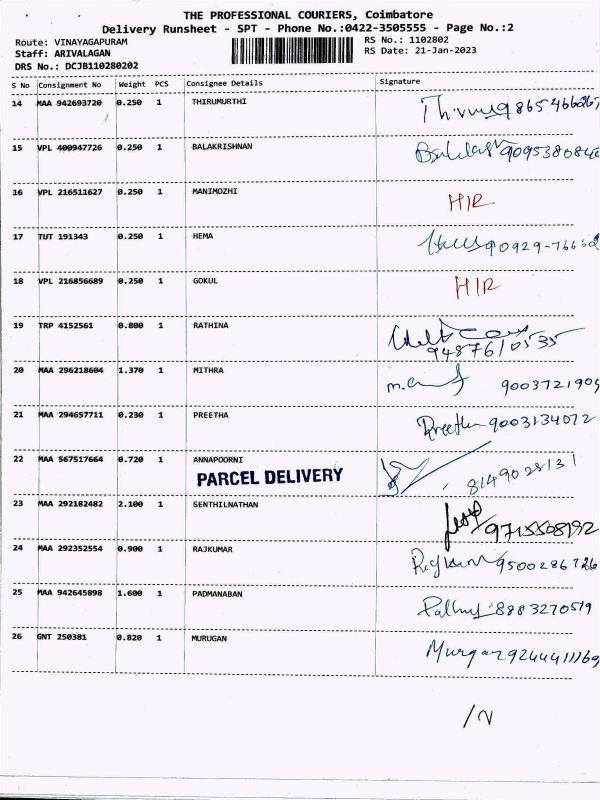 THE PROFESSIONAL COURIERS, Coimbatore
Delivery Runsheet - SPT - Phone No.:0422-3505555 - Page No.:2
Route: VINAYAGAPURAM RS No.: 1102802
Staff: ARIVALAGAN RS Date: 21-Jan-2023
DRS No.: DCJB110280202
S No Consignment No Weight PCS Consignee Details Signature
14 MAA 942693720 0.250 1 THIRUMURTHI
15 VPL 400947726 0.250 1 BALAKRISHNAN
16 VPL 216511627 0.250 1 MANIMOZHI HIR
17 TUT 191343 0.250 1 HEMA
18 VPL 216856689 0.250 1 GOKUL HIR
19 TRP 4152561 0.800 1 RATHINA
9487610535
20 MAA 296218604 1.370 1 MITHRA 900372190
21 MAA 294657711 0.230 1 PREETHA Preetha 9003134072
22 MAA 567517664 0.720 1 ANNAPOORNI 8149028131
PARCEL DELIVERY
23 MAA 292182482 2.100 1 SENTHILNATHAN 9715508192
24 MAA 292352554 0.900 1 RAJKUMAR 9500286726
25 MAA 942645898 1.600 1 PADMANABAN 8883270519
26 GNT 250381 0.820 1 MURUGAN Murgan 9244411169